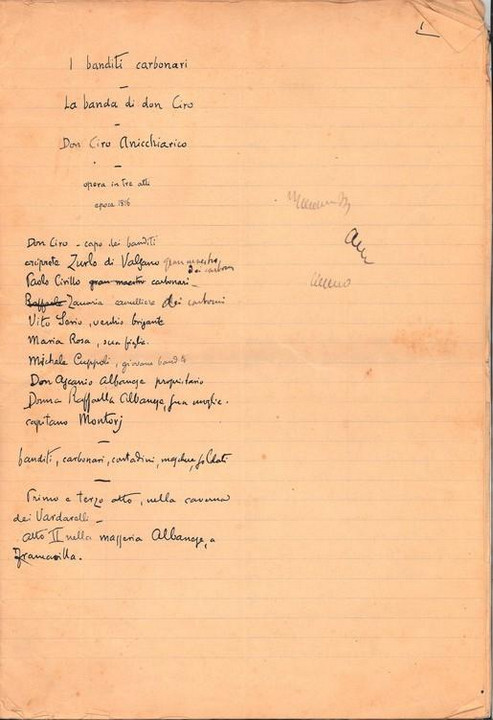 1
I banditi carbonari
La banda di don Ciro
Don Ciro Anicchiarico
opera in tre atti
epoca 1816
Don Ciro - capo dei banditi
arciprete Zurlo di Valsano gran maestro
dei carbon
Paolo Cirillo gran maestro carbonari
Raffaele Zanaria cavalliere dei carbonari
Vito Serio, vecchio brigante
Maria Rosa, sua figlia.
Michele Cuppoli, giovane bandito
Don Ascanio Albanese proprietario
Donna Raffaella Albanese, sua moglie.
capitano Montorj
banditi, carbonari, contadini, maschere, soldati
Primo e terzo atto, nella caverna
dei Vardarelli -
atto II nella masseria Albanese, a
Francavilla.